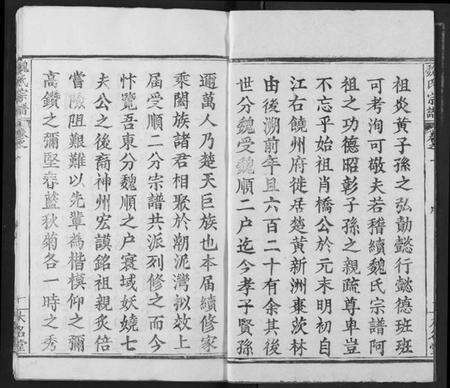 祖炎黄子孫之弘勳懿行懿德班班
可考洵可敬夫若稽續魏氏宗譜阿
祖之功德昭彰子孫之親疏尊卑豈
不忘乎始祖肖橋公於元末明初自
江右饒州府徙居楚黄新洲棗茨林
由後溯前年且六百二十有余其後
世分魏受魏順二户迄今孝子賢孫
邇萬人乃楚天巨族也本届續修家
乘闔族諸君相聚於潮泥灣拟效上
届受順二分宗譜共派列修之而今
忭覽吾東分魏順之户寰域妖嬈七
夫公之後裔神州宏謨銘祖親炙倍
嘗險阻艱難以先輩為楷模仰之彌
高鑽之彌堅春藍秋菊各一時之秀
魏氏宗譜